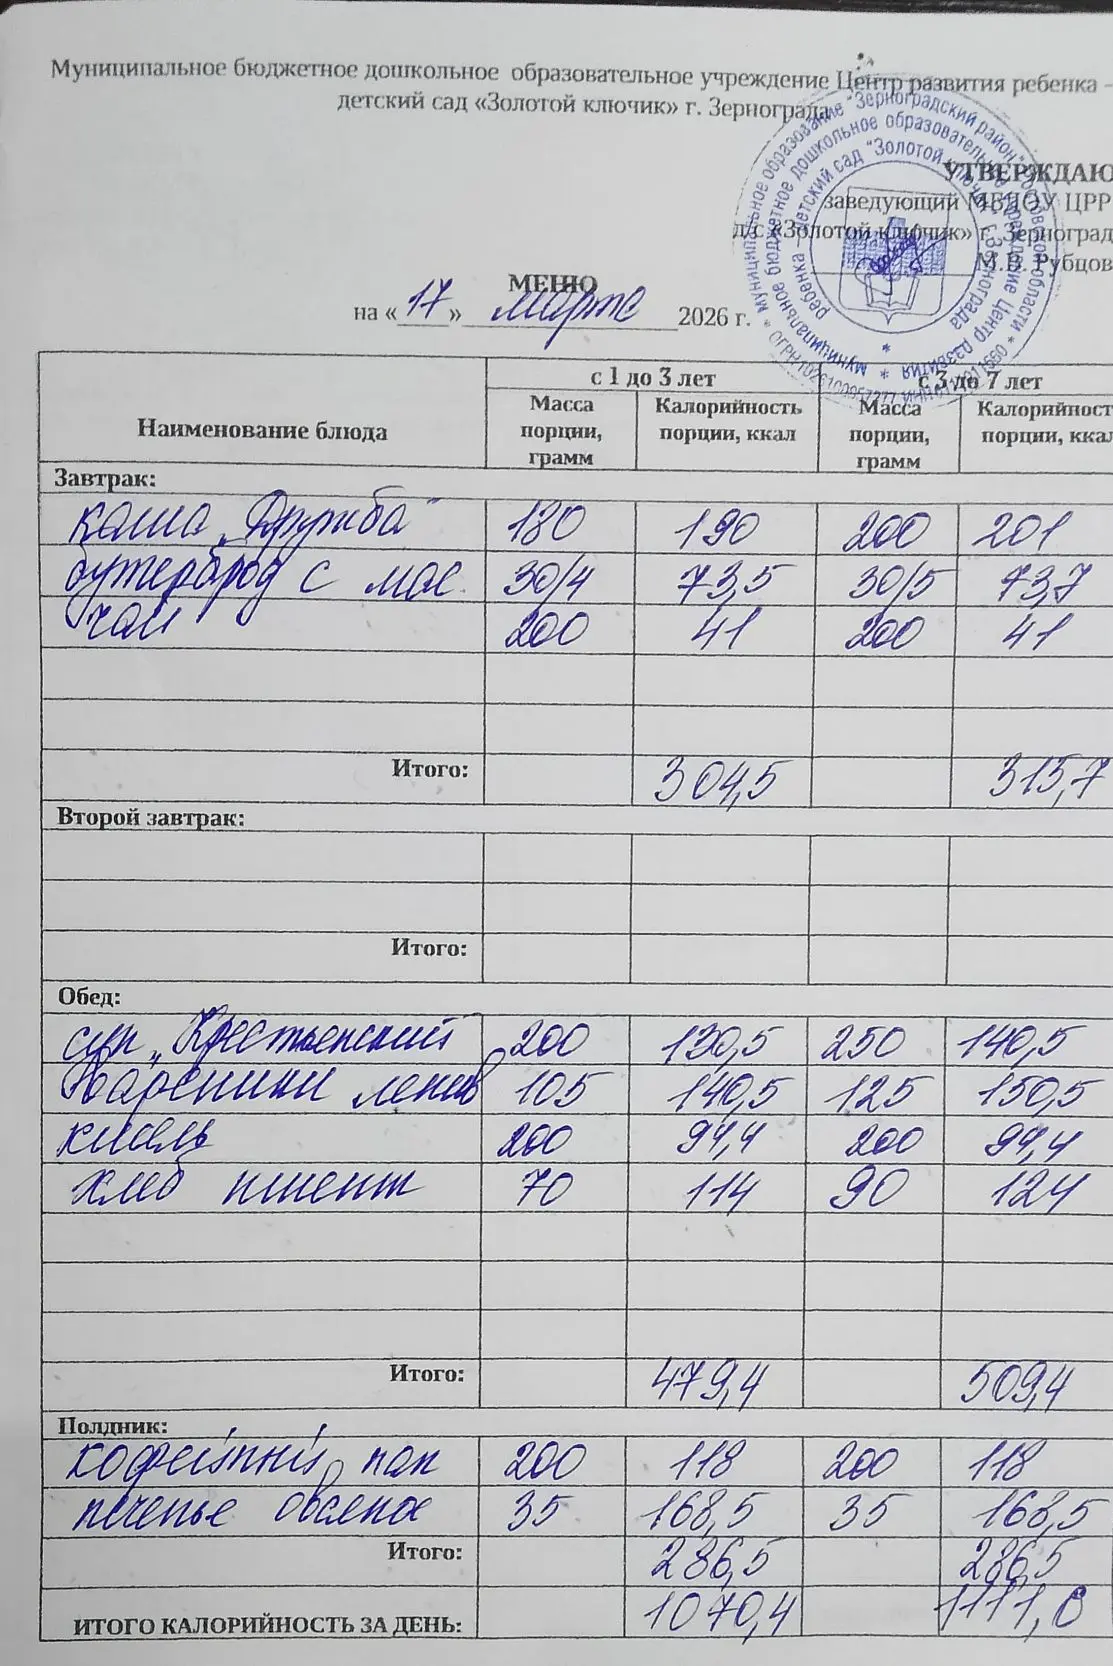 Муниципальное бюджетное дошкольное образовательное учреждение Центр развития ребенка –
детский сад «Золотой ключик» г. Зернограда
УТВЕРЖДАЮ
заведующий МБДОУ ЦРР
д/с «Золотой ключик» г. Зерноград
М.В. Рубцов
МЕНЮ
на «17» марта 2026 г.
Наименование блюда с 1 до 3 лет с 3 до 7 лет
Масса порции, грамм Калорийность порции, ккал Масса порции, грамм Калорийност порции, ккал
Завтрак:
каша „Дружба" 180 190 200 201
бутерброд с мас 30/4 73,5 30/5 73,7
чай 200 41 200 41
Итого: 304,5 315,7
Второй завтрак:
Итого:
Обед:
суп „Крестьенский 200 130,5 250 140,5
Вареники ленив 105 140,5 125 150,5
кисель 200 94,4 200 94,4
хлеб пшент 70 114 90 124
Итого: 479,4 509,4
Полдник:
кофейный нап 200 118 200 118
печенье овсяное 35 168,5 35 168,5
Итого: 286,5 286,5
ИТОГО КАЛОРИЙНОСТЬ ЗА ДЕНЬ: 1070,4 1111,6